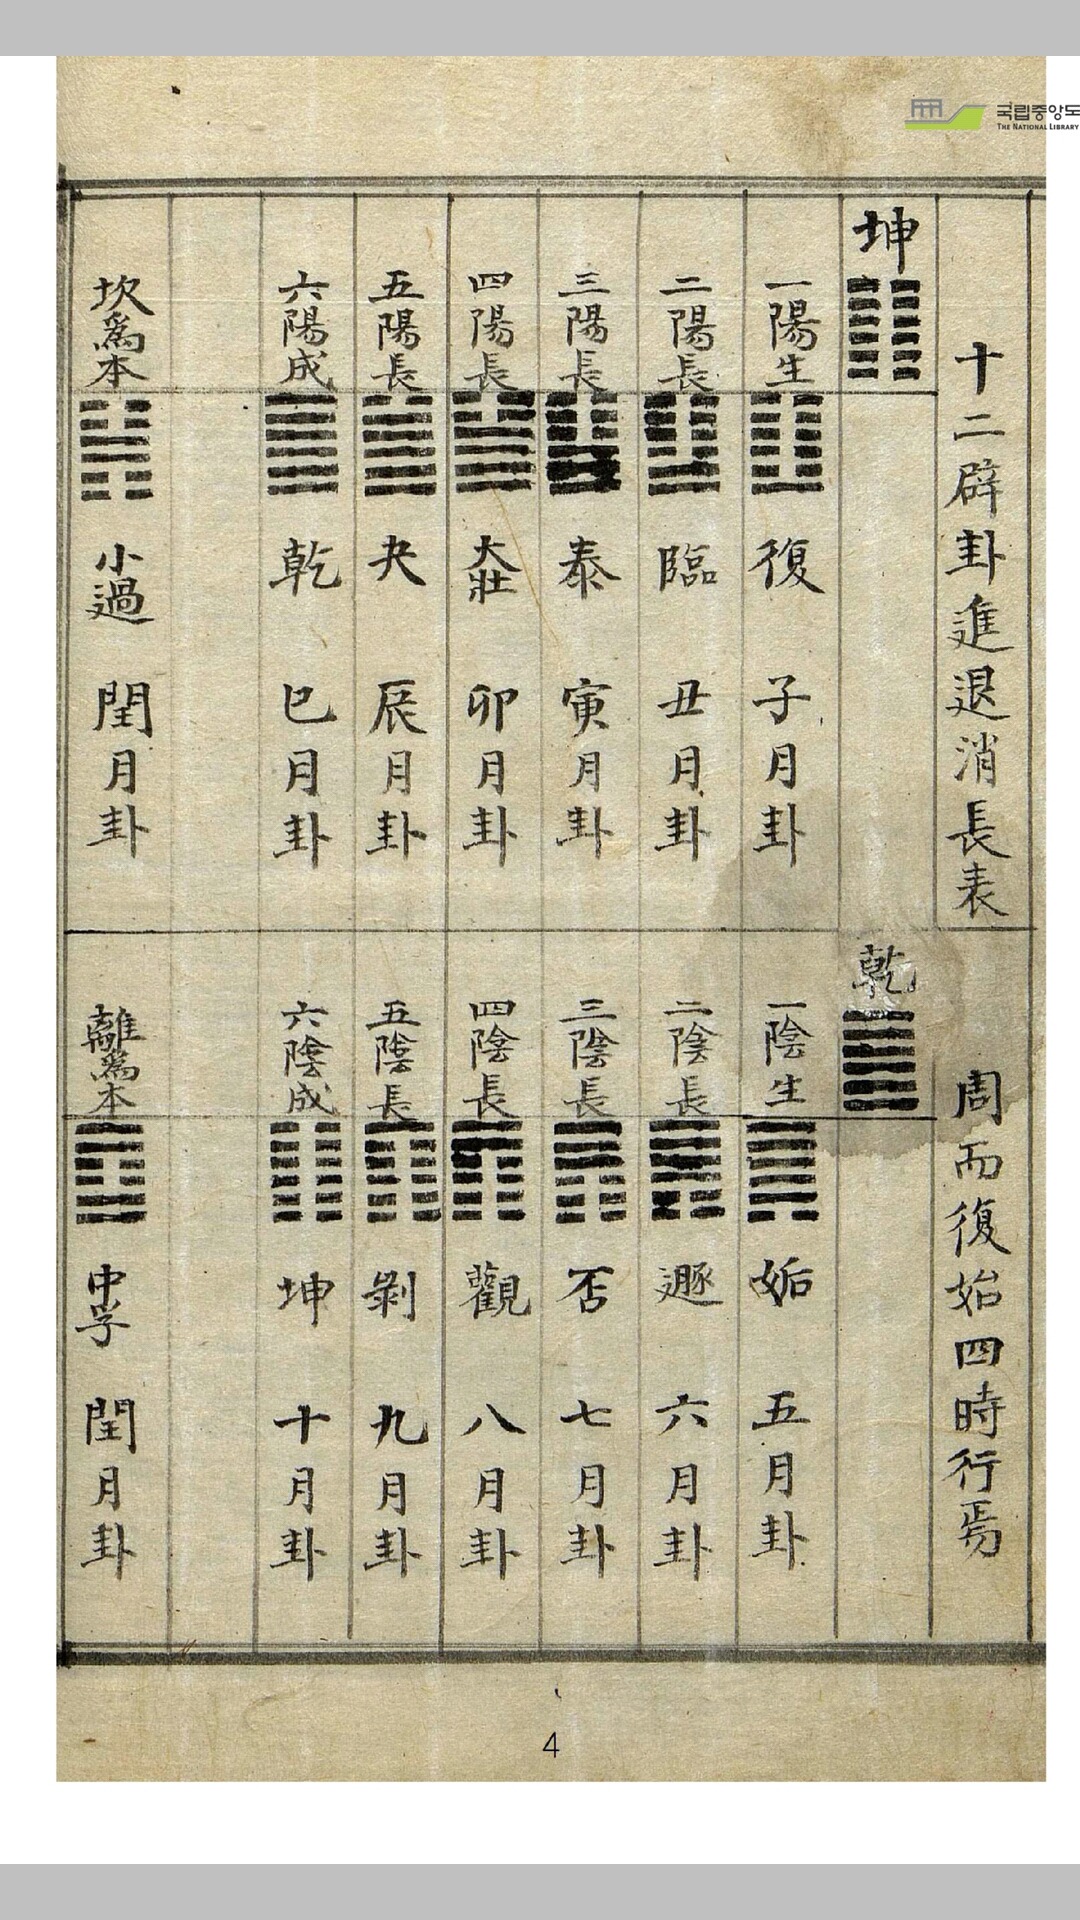 국립중앙도
THE NATIONAL LIBRARY
十二辟卦進退消長表
周而復始四時行焉
坤
乾
一陽生
復
子月卦
一陰生
姤
五月卦
二陽長
臨
丑月卦
二陰長
遯
六月卦
三陽長
泰
寅月卦
三陰長
否
七月卦
四陽長
大壯
卯月卦
四陰長
觀
八月卦
五陽長
夬
辰月卦
五陰長
剝
九月卦
六陽成
乾
巳月卦
六陰成
坤
十月卦
坎爲本
小過
閏月卦
離爲本
中孚
閏月卦
4